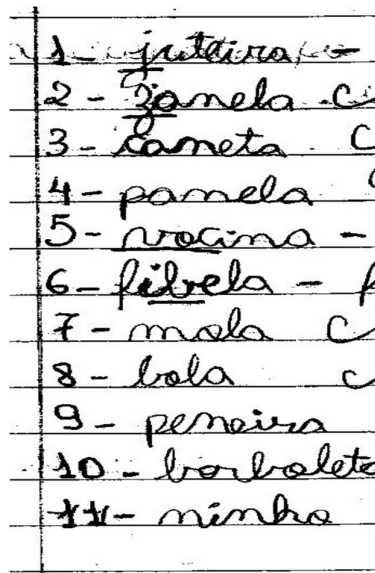 1 - juteira, -
2 - janela - C
3 - caneta C
4 - panela
5 - vacina -
6 - fibela - f
7 - mola C
8 - bola C
9 - peneira
10 - borboleta
11 - ninho